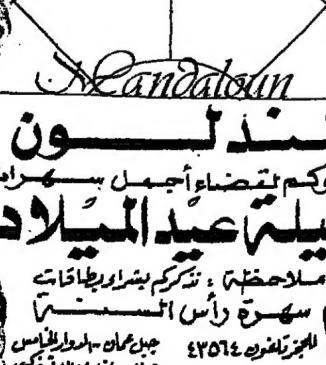 Mandaloun
ـنـدلـــون
ـوكم لقضاء أجمل سهرا
ـيلة عيد الميلاد
ملاحظة : نذكركم بشراء بطاقات
سهرة رأس السنة
للحجز تلفون ٤٣٥٦٤
جبل عمان - الدوار الخامس